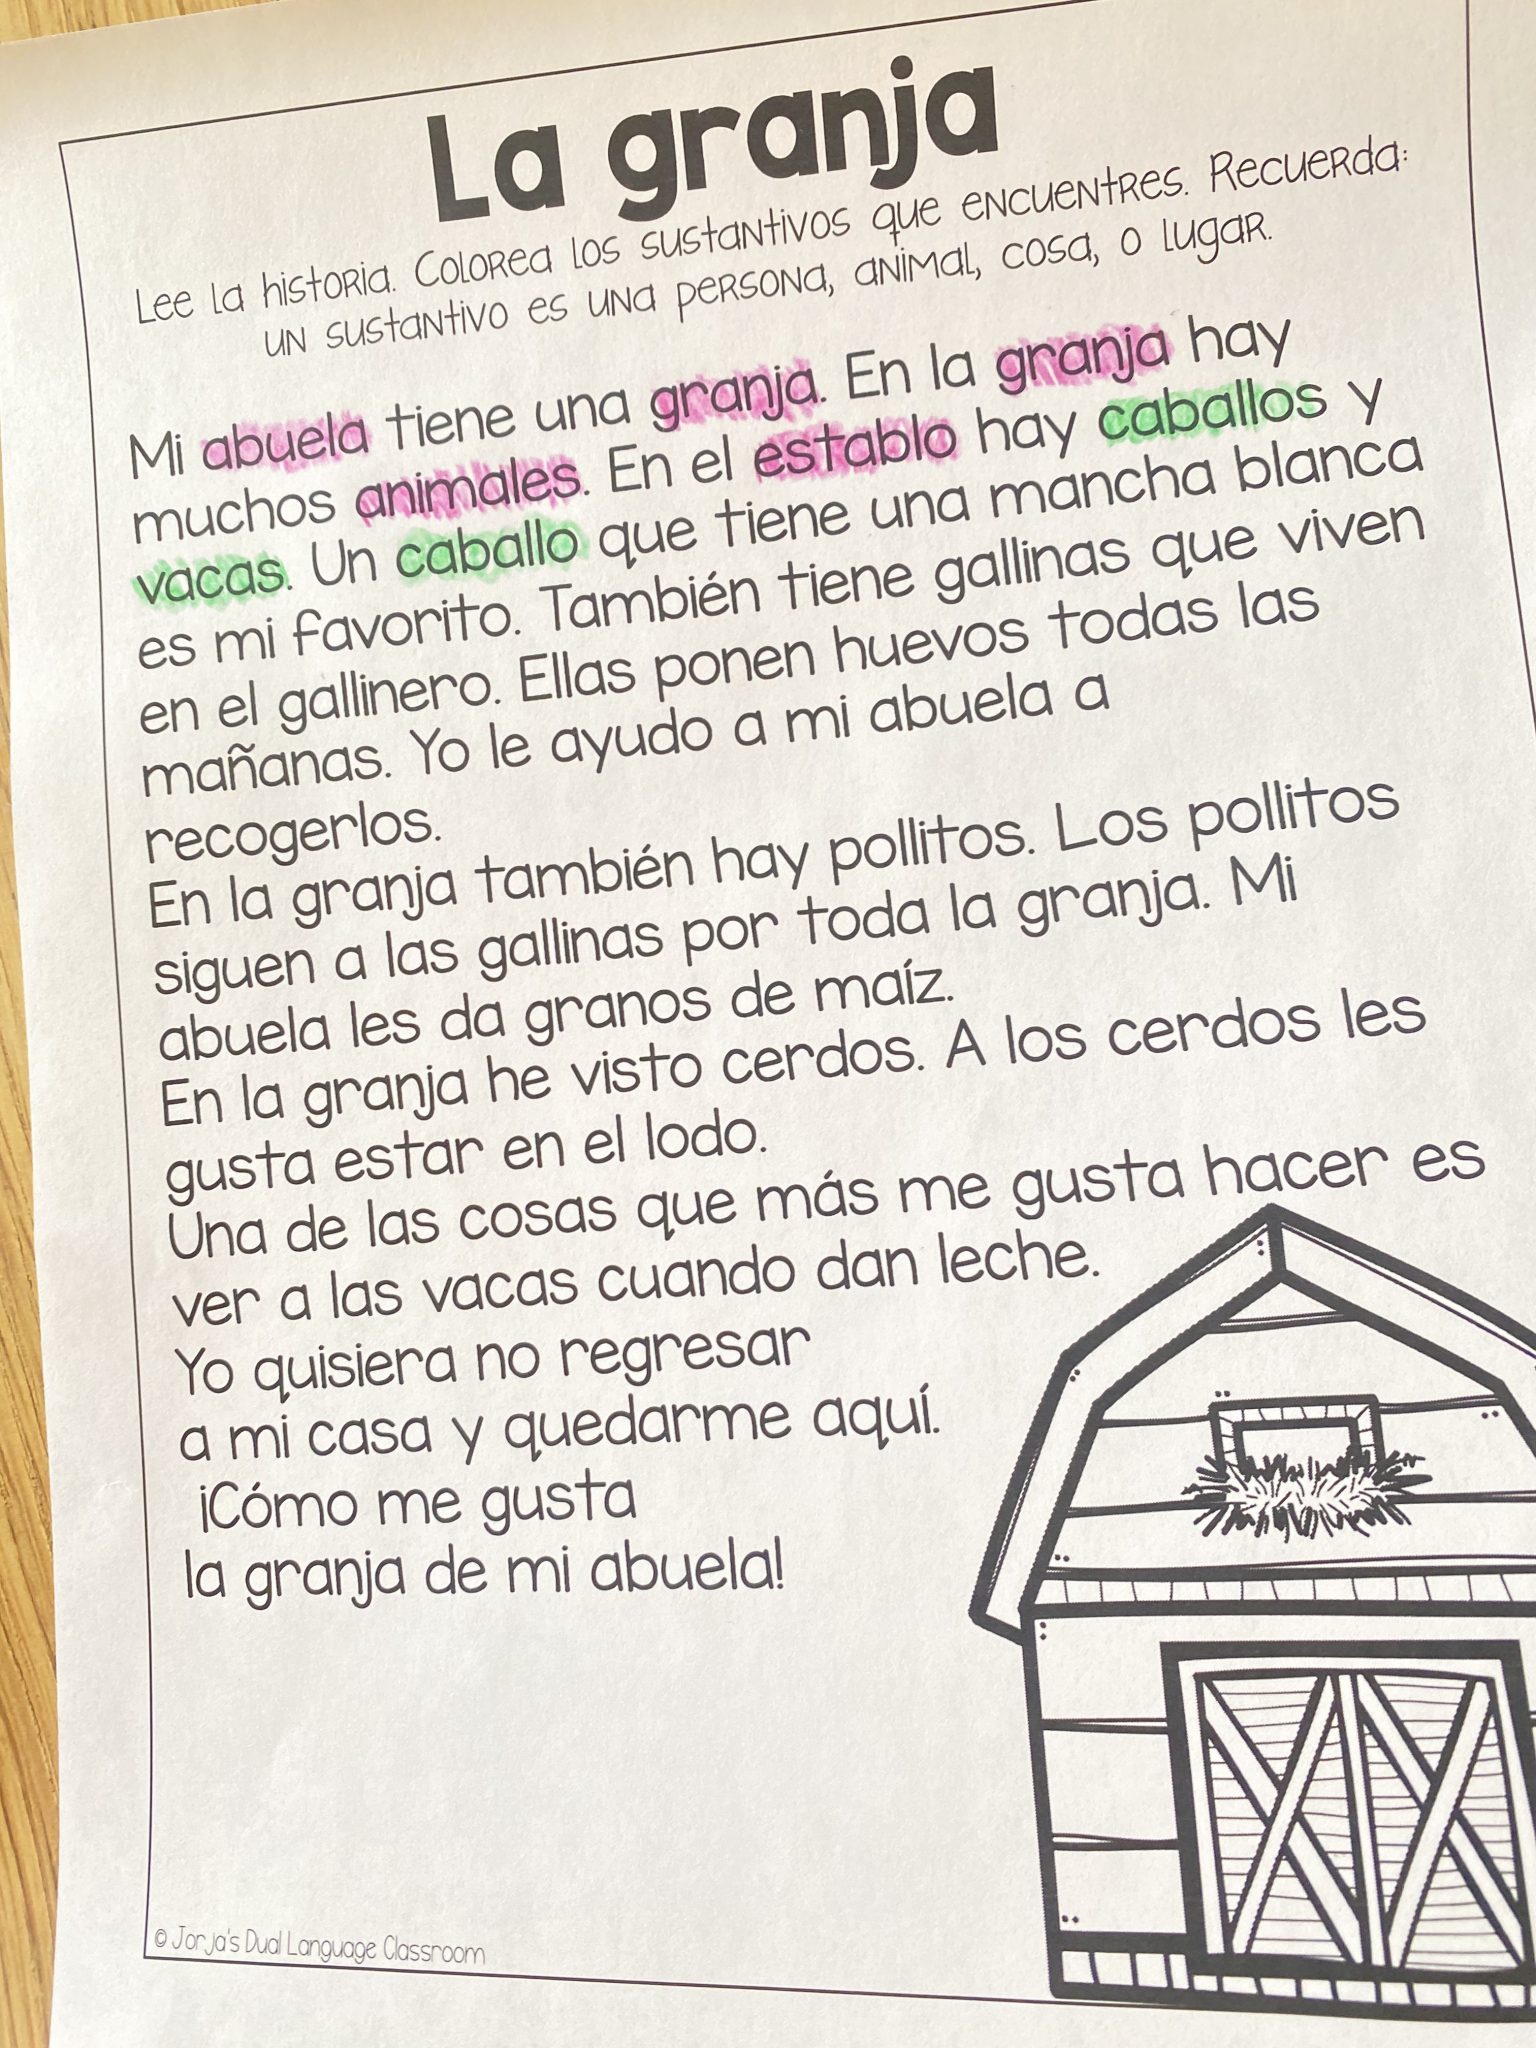 La granja
Lee la historia. Colorea los sustantivos que encuentres. Recuerda:
un sustantivo es una persona, animal, cosa, o lugar.
Mi abuela tiene una granja. En la granja hay
muchos animales. En el establo hay caballos y
vacas. Un caballo que tiene una mancha blanca
es mi favorito. También tiene gallinas que viven
en el gallinero. Ellas ponen huevos todas las
mañanas. Yo le ayudo a mi abuela a
recogerlos.
En la granja también hay pollitos. Los pollitos
siguen a las gallinas por toda la granja. Mi
abuela les da granos de maíz.
En la granja he visto cerdos. A los cerdos les
gusta estar en el lodo.
Una de las cosas que más me gusta hacer es
ver a las vacas cuando dan leche.
Yo quisiera no regresar
a mi casa y quedarme aquí.
¡Cómo me gusta
la granja de mi abuela!
© Jorja's Dual Language Classroom